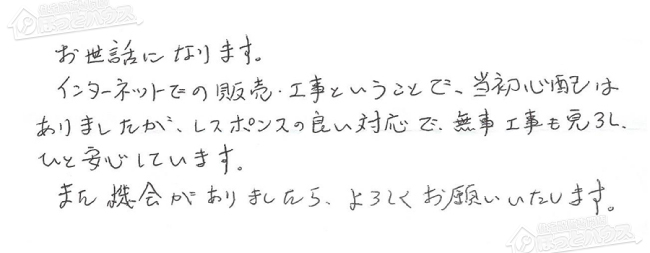 お世話になります。
インターネットでの販売・工事ということで、当初心配は
ありましたが、レスポンスの良い対応で、無事工事も完了し、
ひと安心しています。
また機会がありましたら、よろしくお願いいたします。